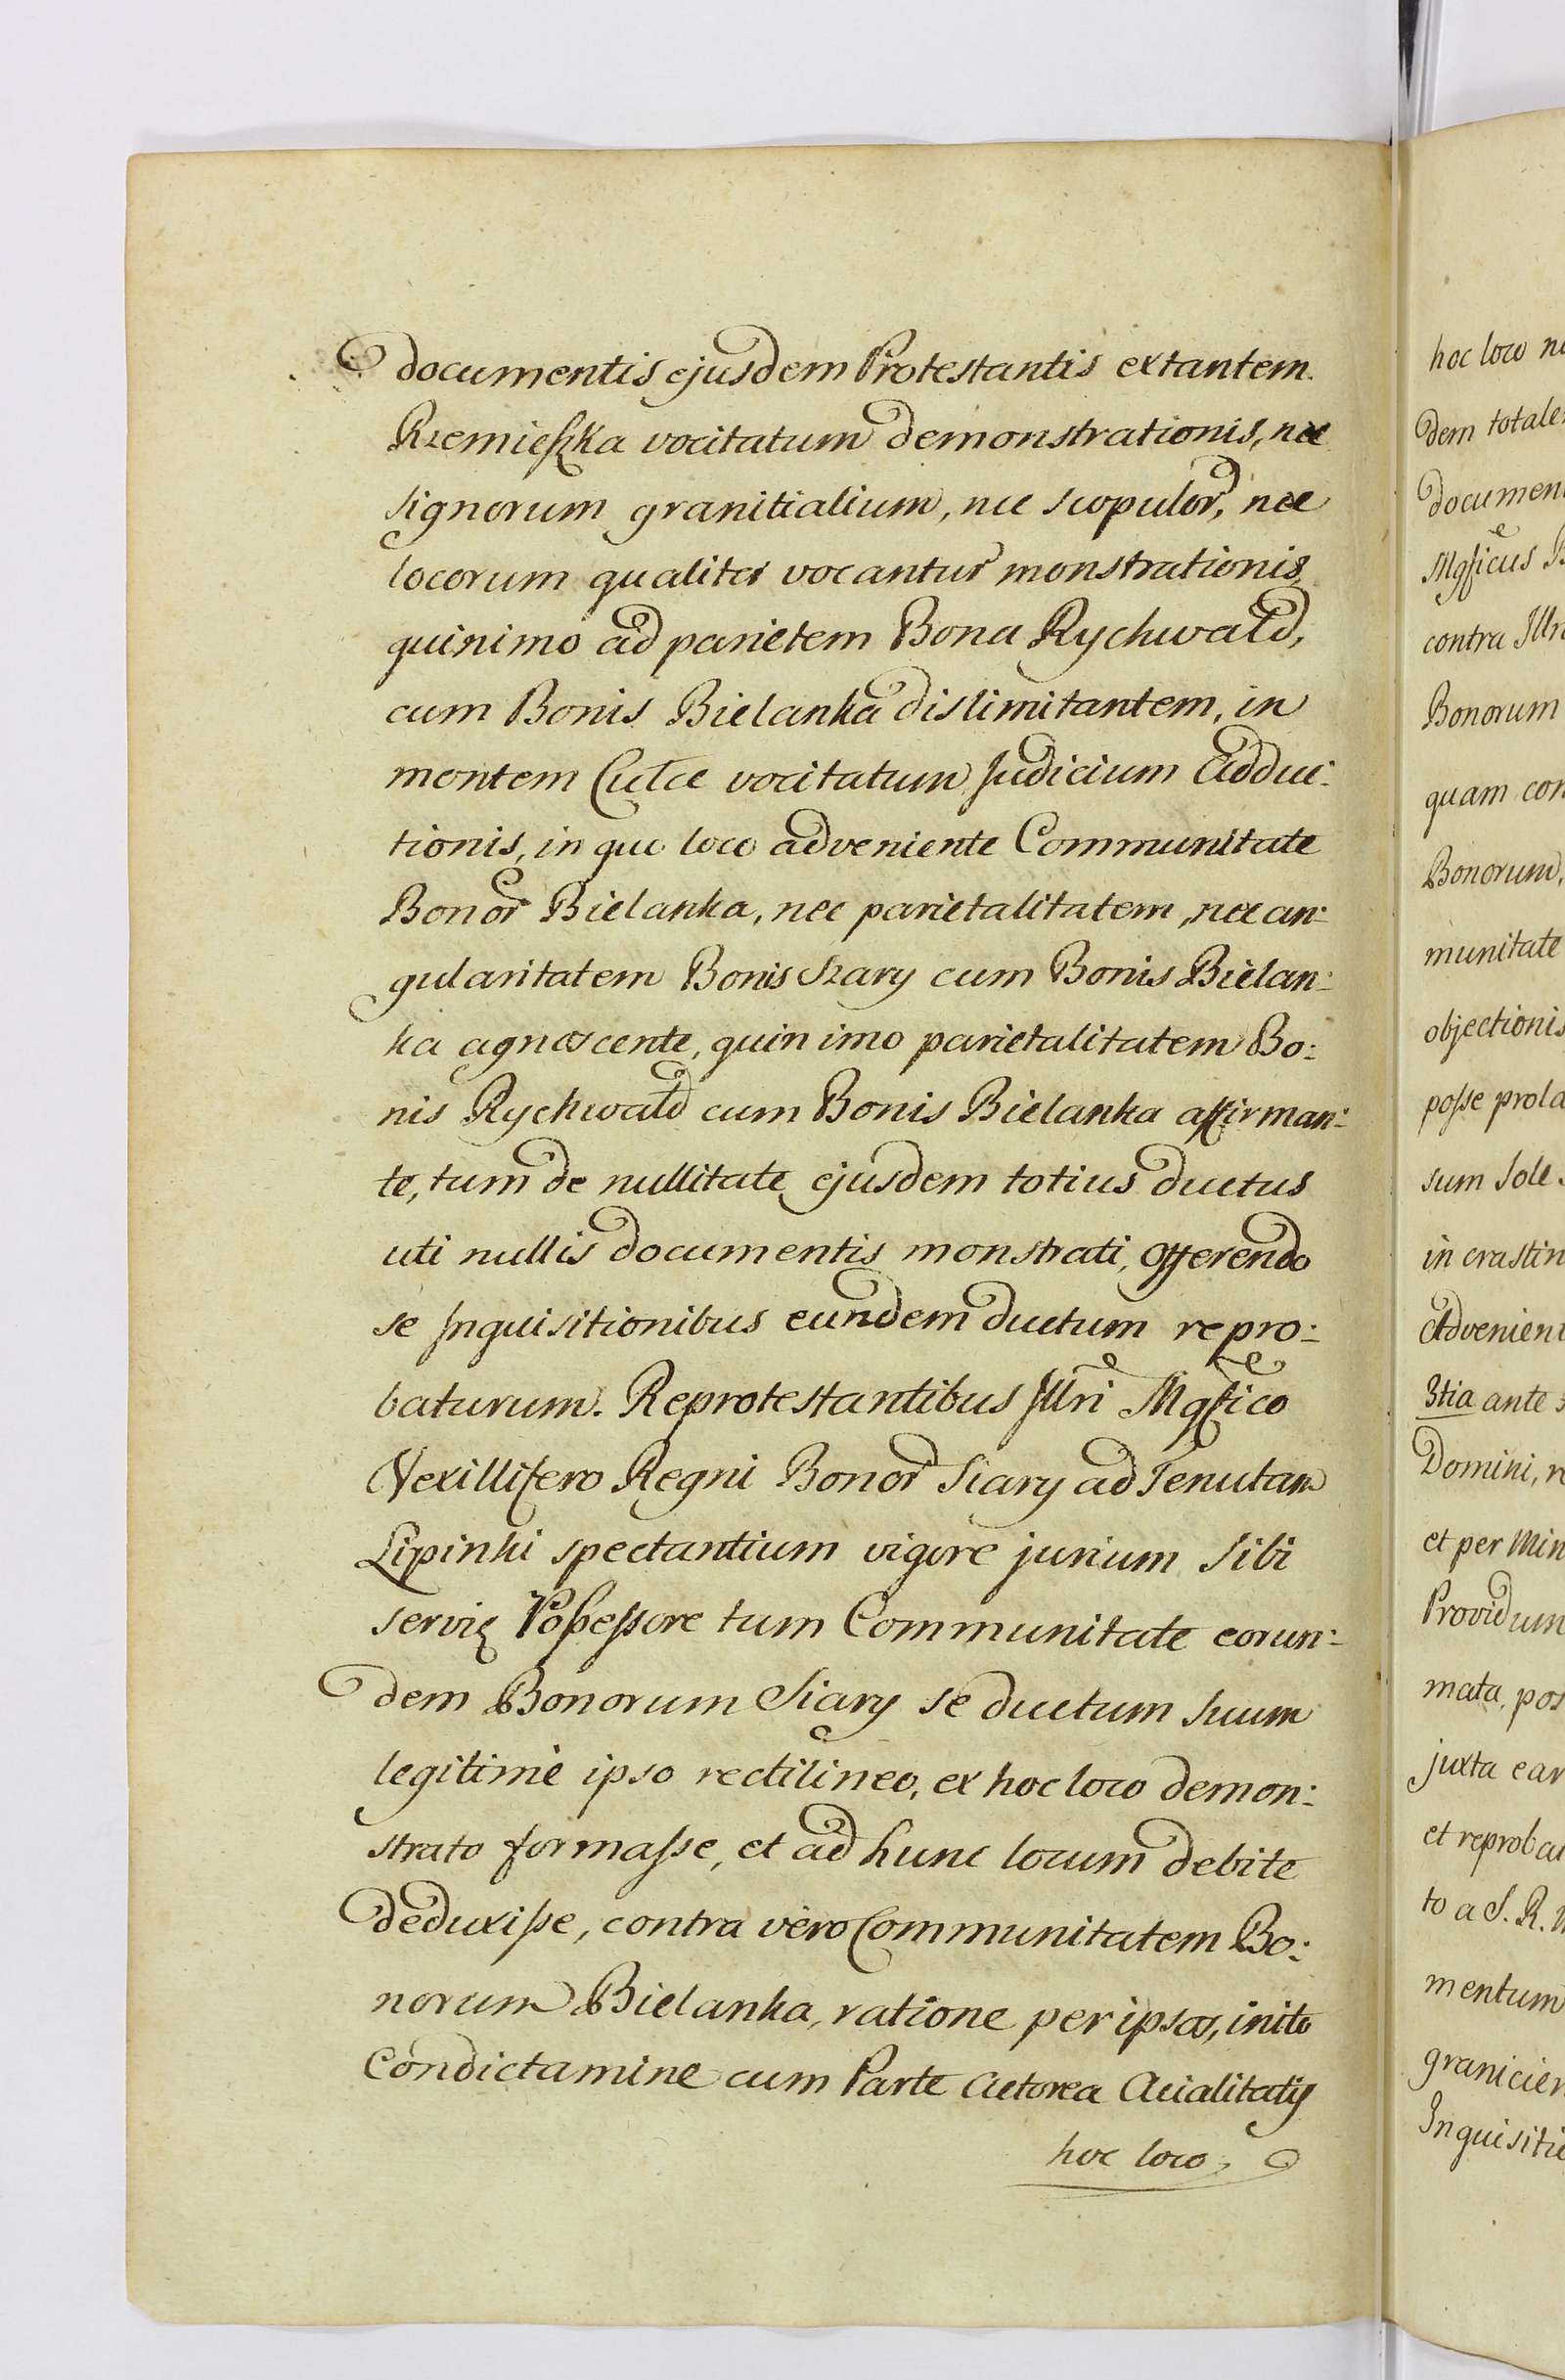 documentis ejusdem Protestantis extantem
Rzemieszka vocitatum demonstrationis, nec
signorum granitialium, nec scopulor, nec
locorum qualiter vocantur monstrationis
quinimo ad parietem Bona Rychwald,
cum Bonis Bielanka dislimitantem, in
montem vocitatum Judicium adduc:
tionis, in quo loco adveniente Communitate
Bonor Bielanka, nec parietalitatem, nec an:
gularitatem Bonis Szary cum Bonis Bielan:
ka agnoscente, quin imo parietalitatem Bo:
nis Rychwald cum Bonis Bielanka affirman:
te, tum de nullitate ejusdem totius ductus
uti nullis documentis monstrati, offerendo
se Inquisitionibus eundem ductum repro:
baturum. Reprotestantibus Illri Mgfico
Vexillifero Regni Bonor Siary ad Tenutam
Lipinki spectantium vigore jurium sibi
Possessore tum Communitate eorun:
dem Bonorum Siary se ductum suum
legitime ipso rectilineo, ex hoc loco demon:
strato formasse, et ad hunc locum debite
deduxisse, contra vero Communitatem Bo:
norum Bielanka, ratione per ipsos, inito
Condictamine cum Parte Actorea Acialitatis
hoc loco
hoc loco
dem totale
documen
Mgficus
contra Illr
Bonorum
quam con
Bonorum,
munitate
objectionis
posse prola
sum sole
in crastin
Advenient
3tia ante
Domini, r
et per Min
Providum
mata, pos
juxta ear
et reprobat
to a S. R.
mentum
granicier
Inquisitio